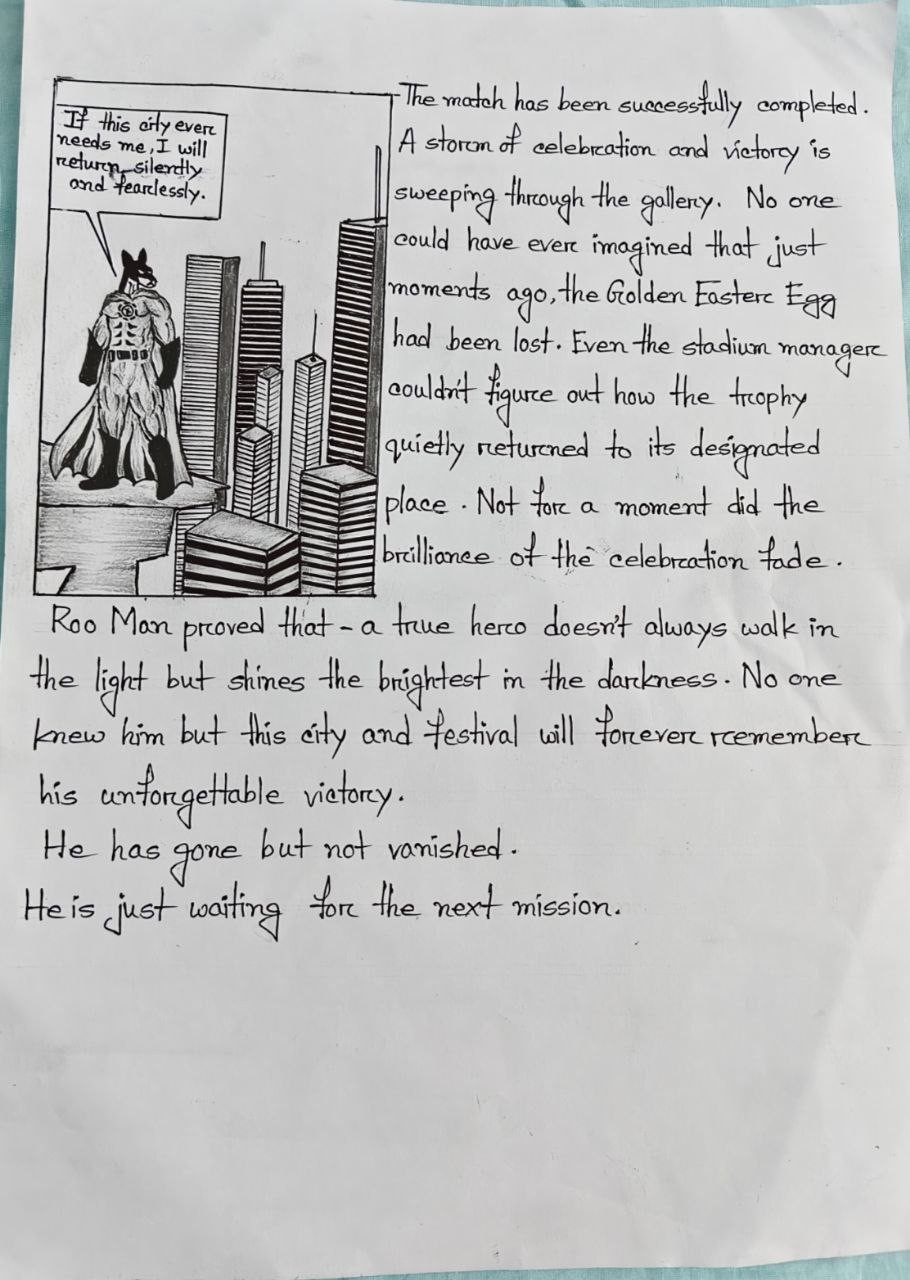 If this city ever
needs me, I will
return silently
and fearlessly.
The match has been successfully completed.
A storm of celebration and victory is
sweeping through the gallery. No one
could have ever imagined that just
moments ago, the Golden Easter Egg
had been lost. Even the stadium manager
couldn't figure out how the trophy
quietly returned to its designated
place. Not for a moment did the
brilliance of the celebration fade.
Roo Man proved that - a true hero doesn't always walk in
the light but shines the brightest in the darkness. No one
knew him but this city and festival will forever remember
his unforgettable victory.
He has gone but not vanished.
He is just waiting for the next mission.